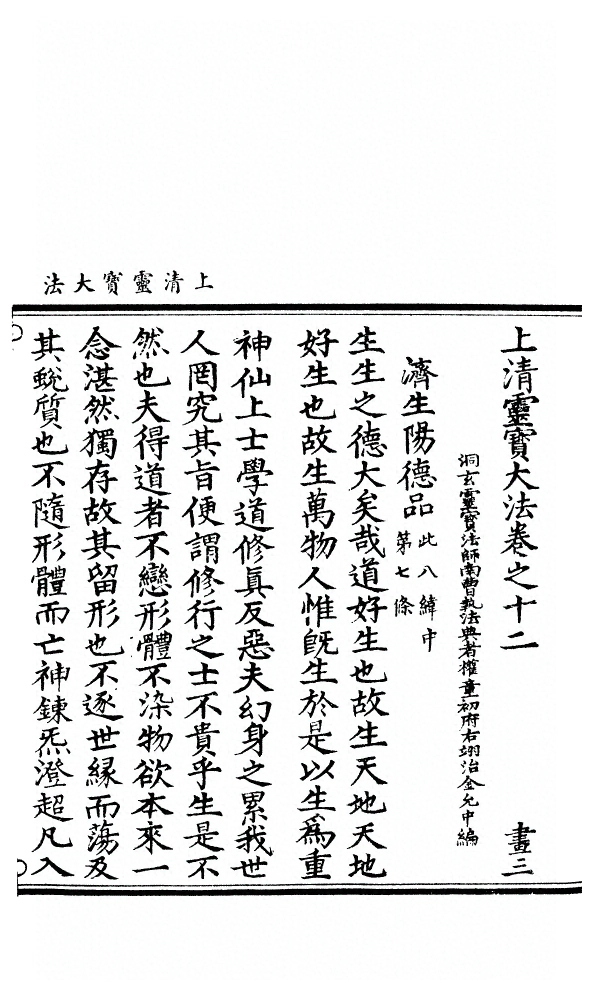 上清靈寶大法
上清靈寶大法卷之十二 畫三
洞玄靈寶法師南曹執法典者權童初府右翊治金允中編
濟生陽德品此八緯中
第七條
生生之德大矣哉道好生也故生天地天地
好生也故生萬物人惟旣生於是以生爲重
神仙上士學道修眞反惡夫幻身之累我世
人罔究其旨便謂修行之士不貴乎生是不
然也夫得道者不戀形體不染物欲本來一
念湛然獨存故其留形也不逐世緣而蕩及
其蛻質也不隨形體而亡神鍊炁澄超凡入